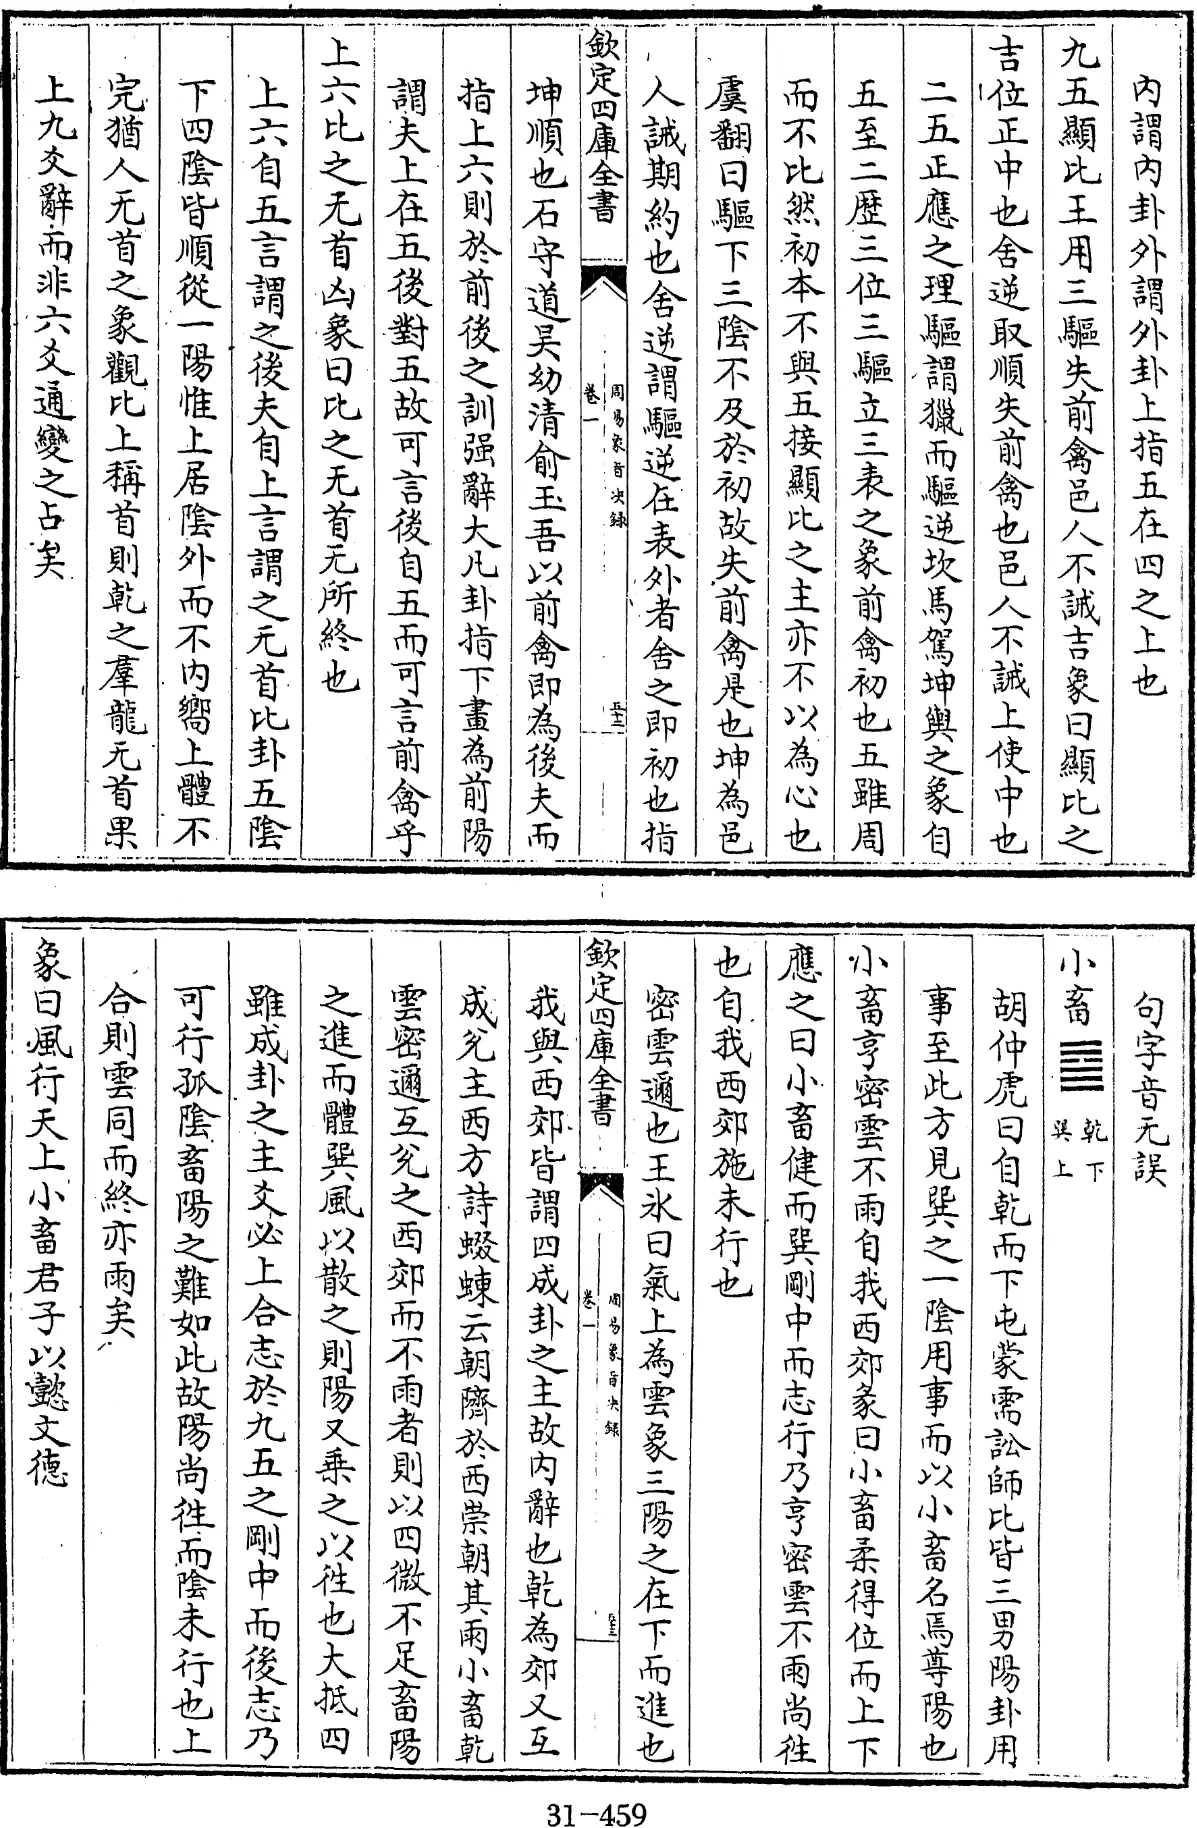 内謂内卦外謂外卦上指五在四之上也
九五顯比王用三驅失前禽邑人不誡吉象曰顯比之
吉位正中也舍逆取順失前禽也邑人不誡上使中也
二五正應之理驅謂獵而驅逆坎馬駕坤輿之象自
五至二歴三位三驅立三表之象前禽初也五雖周
而不比然初本不與五接顯比之主亦不以為心也
虞翻曰驅下三隂不及於初故失前禽是也坤為邑
人誡期約也舍逆謂驅逆在表外者舍之即初也指
欽定四庫全書
周易象旨决録
卷一
五十二
坤順也石守道吴幼清俞玉吾以前禽即為後夫而
指上六則於前後之訓强辭大凡卦指下畫為前陽
謂夫上在五後對五故可言後自五而可言前禽乎
上六比之无首凶象曰比之无首无所終也
上六自五言謂之後夫自上言謂之无首比卦五隂
下四隂皆順從一陽惟上居隂外而不内嚮上體不
完猶人无首之象觀比上稱首則乾之羣龍无首果
上九爻辭而非六爻通變之占矣
句字音无誤
小畜䷈
乾下
巽上
胡仲虎曰自乾而下屯蒙需訟師比皆三男陽卦用
事至此方見巽之一隂用事而以小畜名焉尊陽也
小畜亨密雲不雨自我西郊彖曰小畜柔得位而上下
應之曰小畜健而巽剛中而志行乃亨密雲不雨尚往
也自我西郊施未行也
密雲邇也王氷曰氣上為雲象三陽之在下而進也
欽定四庫全書
周易象旨决録
卷一
五十三
我與西郊皆謂四成卦之主故内辭也乾為郊又互
成兊主西方詩蝃蝀云朝隮於西崇朝其雨小畜乾
雲密邇互兊之西郊而不雨者則以四微不足畜陽
之進而體巽風以散之則陽又乗之以往也大抵四
雖成卦之主爻必上合志於九五之剛中而後志乃
可行孤隂畜陽之難如此故陽尚往而隂未行也上
合則雲同而終亦雨矣
象曰風行天上小畜君子以懿文德
31-459